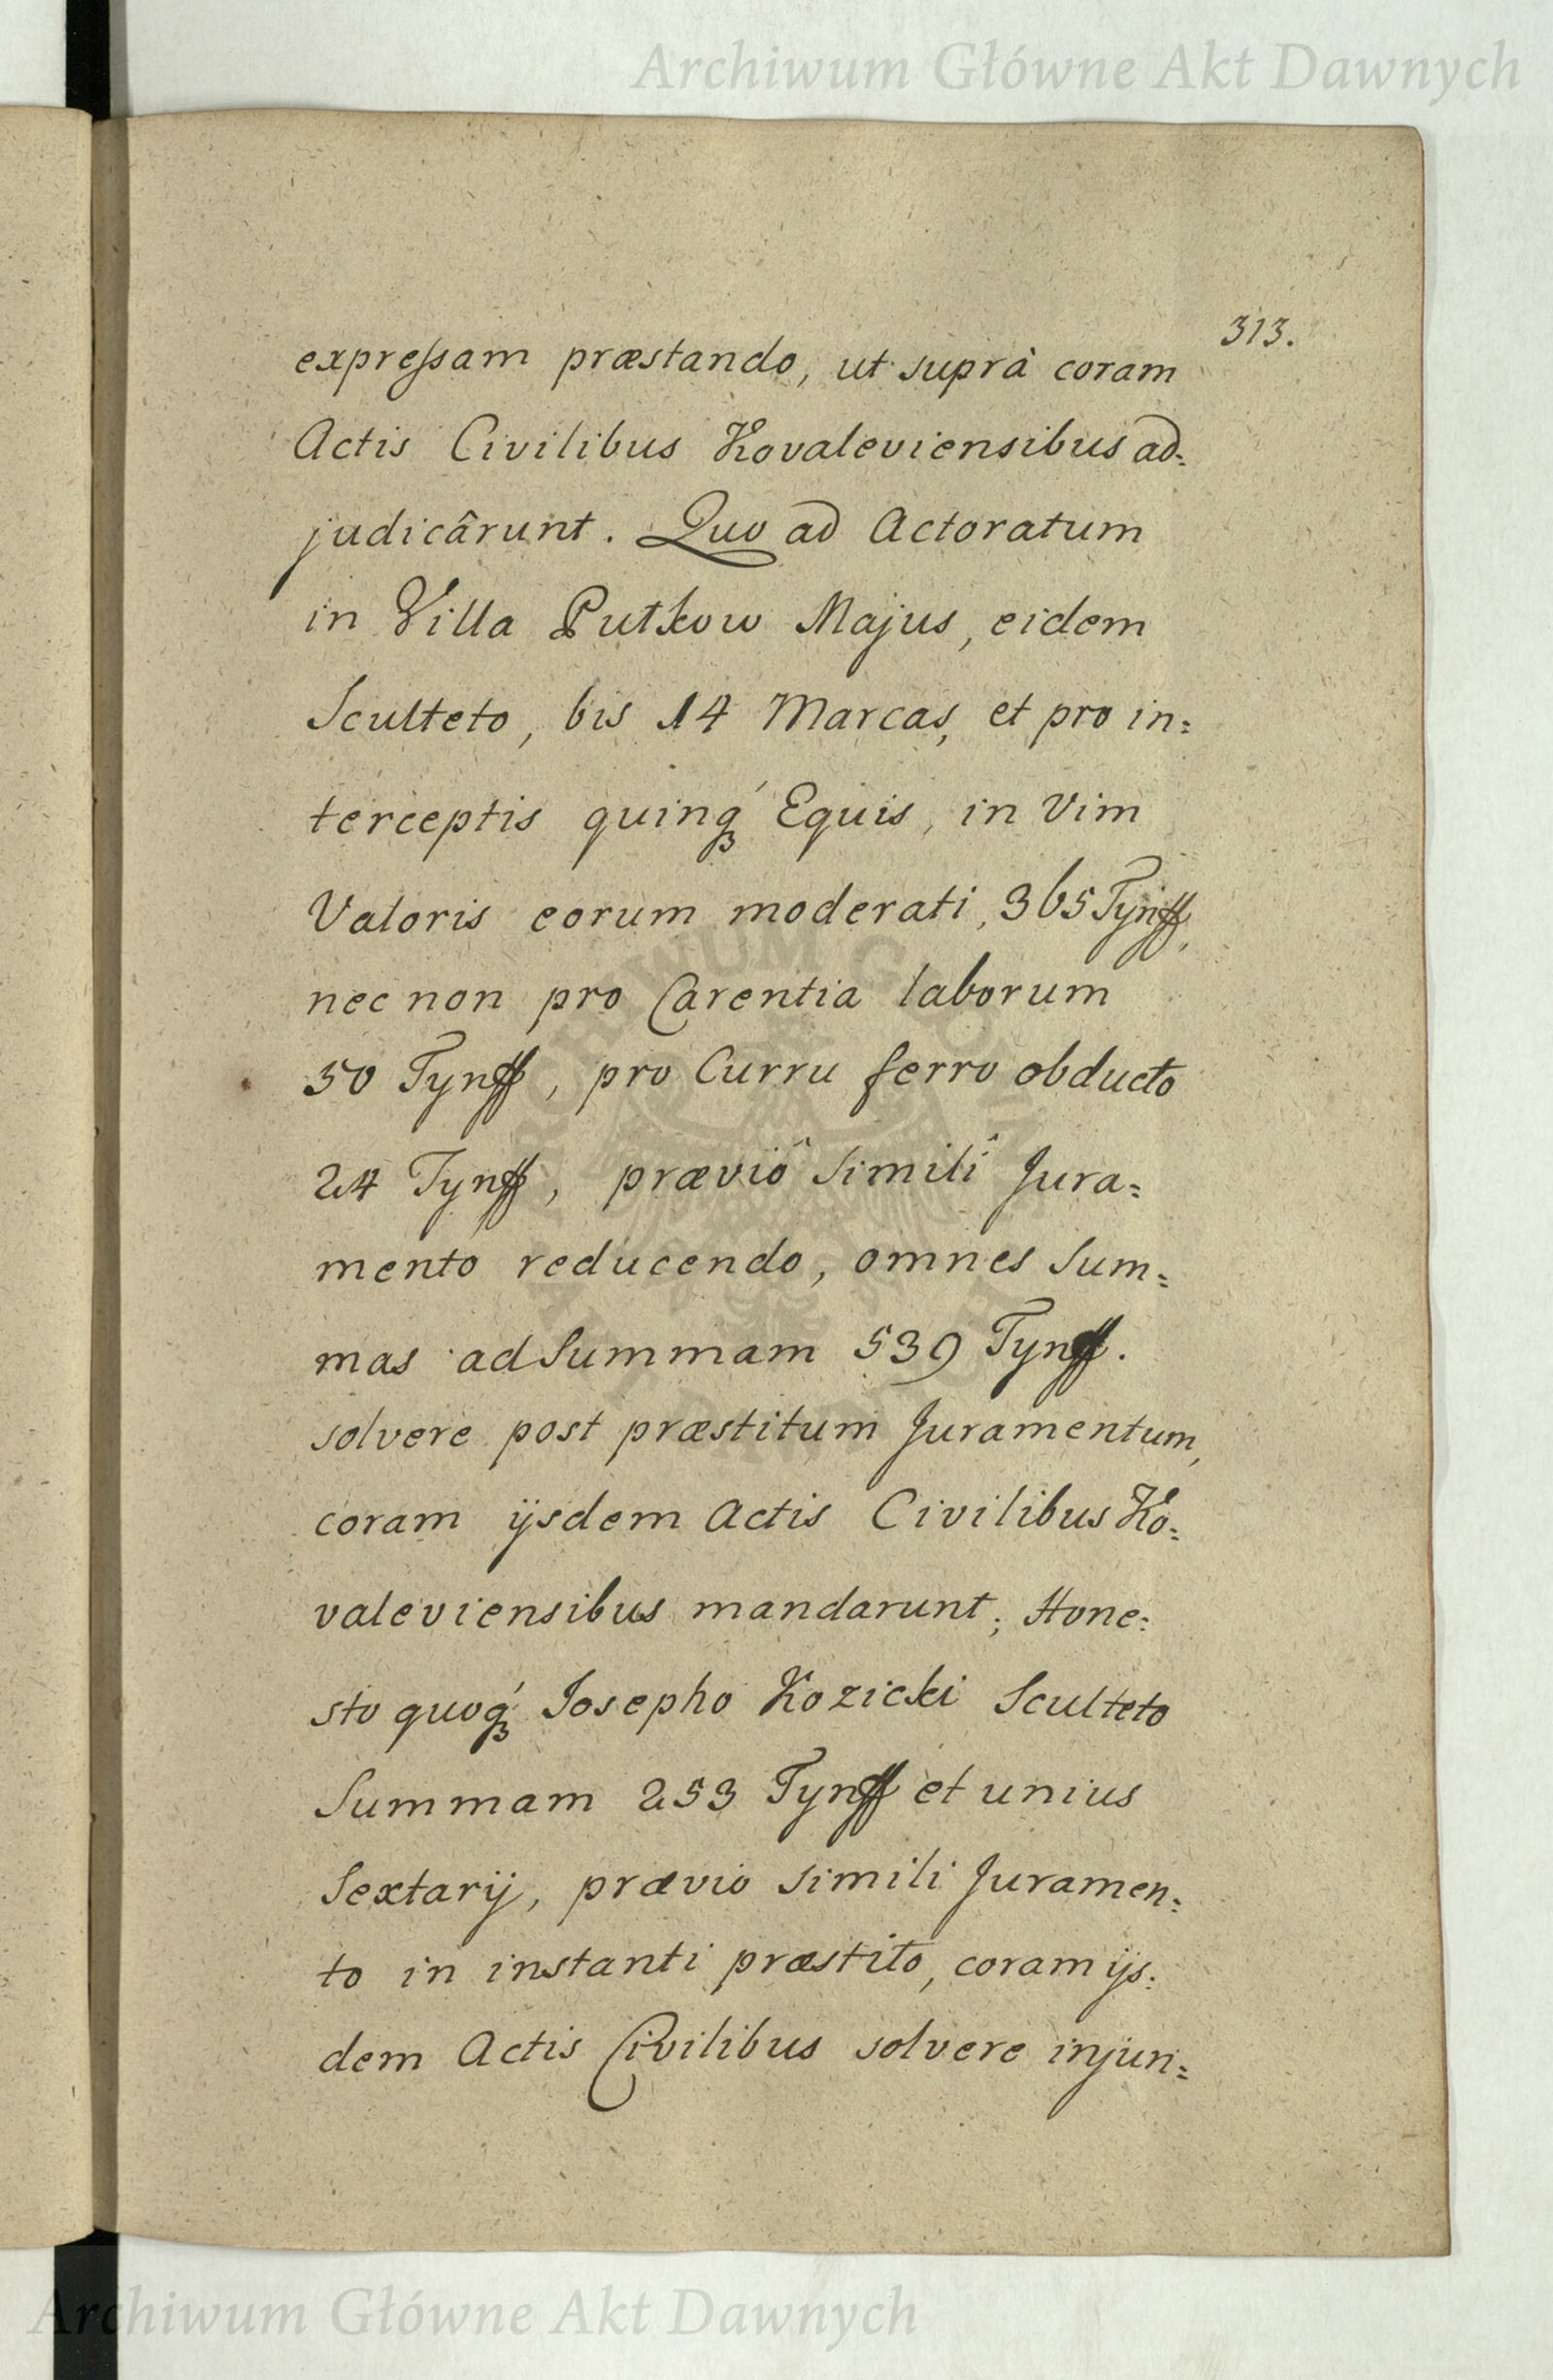 Archiwum Główne Akt Dawnych
313.
expreſsam præstando, ut suprà coram
Actis Civilibus Kovaleviensibus ad=
judicârunt. Quo ad Actoratum
in Villa Putkow Majus, eidem
Sculteto, bis 14 Marcas, et pro in=
terceptis quinq́ꝫ Equis, in Vim
Valoris eorum moderati, 365 Tynff,
nec non pro Carentia laborum
50 Tynff, pro Curru ferro obducto
24 Tynff, præviô similî Jura=
mento reducendo, omnes Sum=
mas ad Summam 539 Tynff.
solvere post præstitum Juramentum,
coram ijsdem Actis Civilibus Ko=
valeviensibus mandarunt; Hone=
sto quoq́ꝫ Josepho Kozicki Sculteto
Summam 253 Tynff et unius
Sextarij, prævio simili Juramen=
to in instanti præstito, coram ijs=
dem Actis Civilibus solvere injun=
Archiwum Główne Akt Dawnych